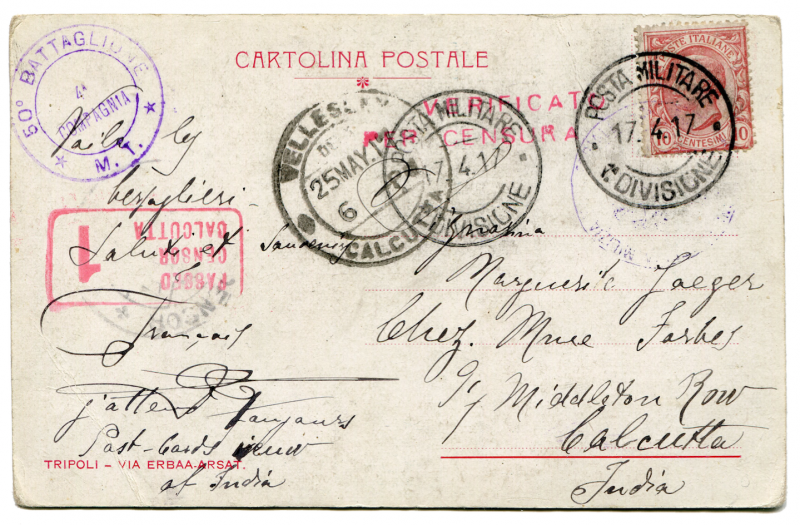 CARTOLINA POSTALE
50° BATTAGLIONE
4ª
COMPAGNIA
M. T.
VERIFICATO
PER CENSURA
POSTE ITALIANE
10 CENTESIMI 10
POSTA MILITARE
17. 4. 17
1ª DIVISIONE
POSTA MILITARE
17. 4. 17
1ª DIVISIONE
WELLESLEY
25 MAY. 17
6
CALCUTTA
MILITA
PASSED
CENSOR
CALCUTTA
1
CENSOR
bersaglieri-
Saluti et Souvenirs
François
j'attend toujours
Post-Cards
of India
Marguerite Jaeger
Chez. Mme Forbes
9/1 Middleton Row
Calcutta
India
TRIPOLI - VIA ERBAA-ARSAT.